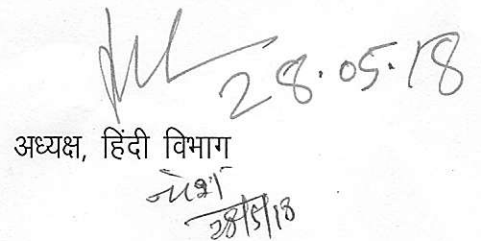 28.05.18
अध्यक्ष, हिंदी विभाग
28/5/18